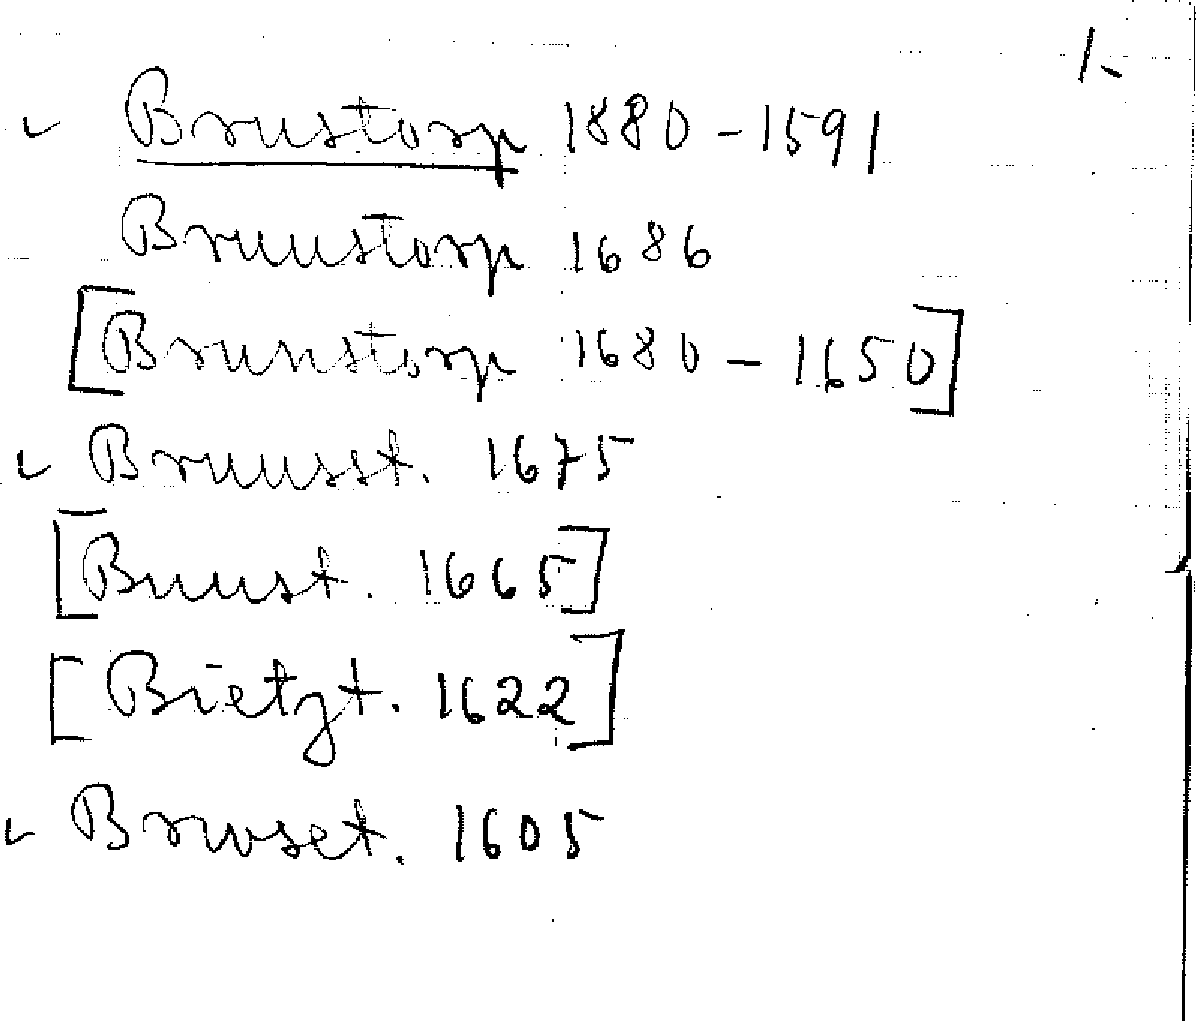 1.
✓ Brustorp 1880-1591
Bruustorp 1686
[Brunstorp 1680-1650]
✓ Bruusst. 1675
[Buust. 1665]
[Bietzt. 1622]
✓ Brwset. 1605